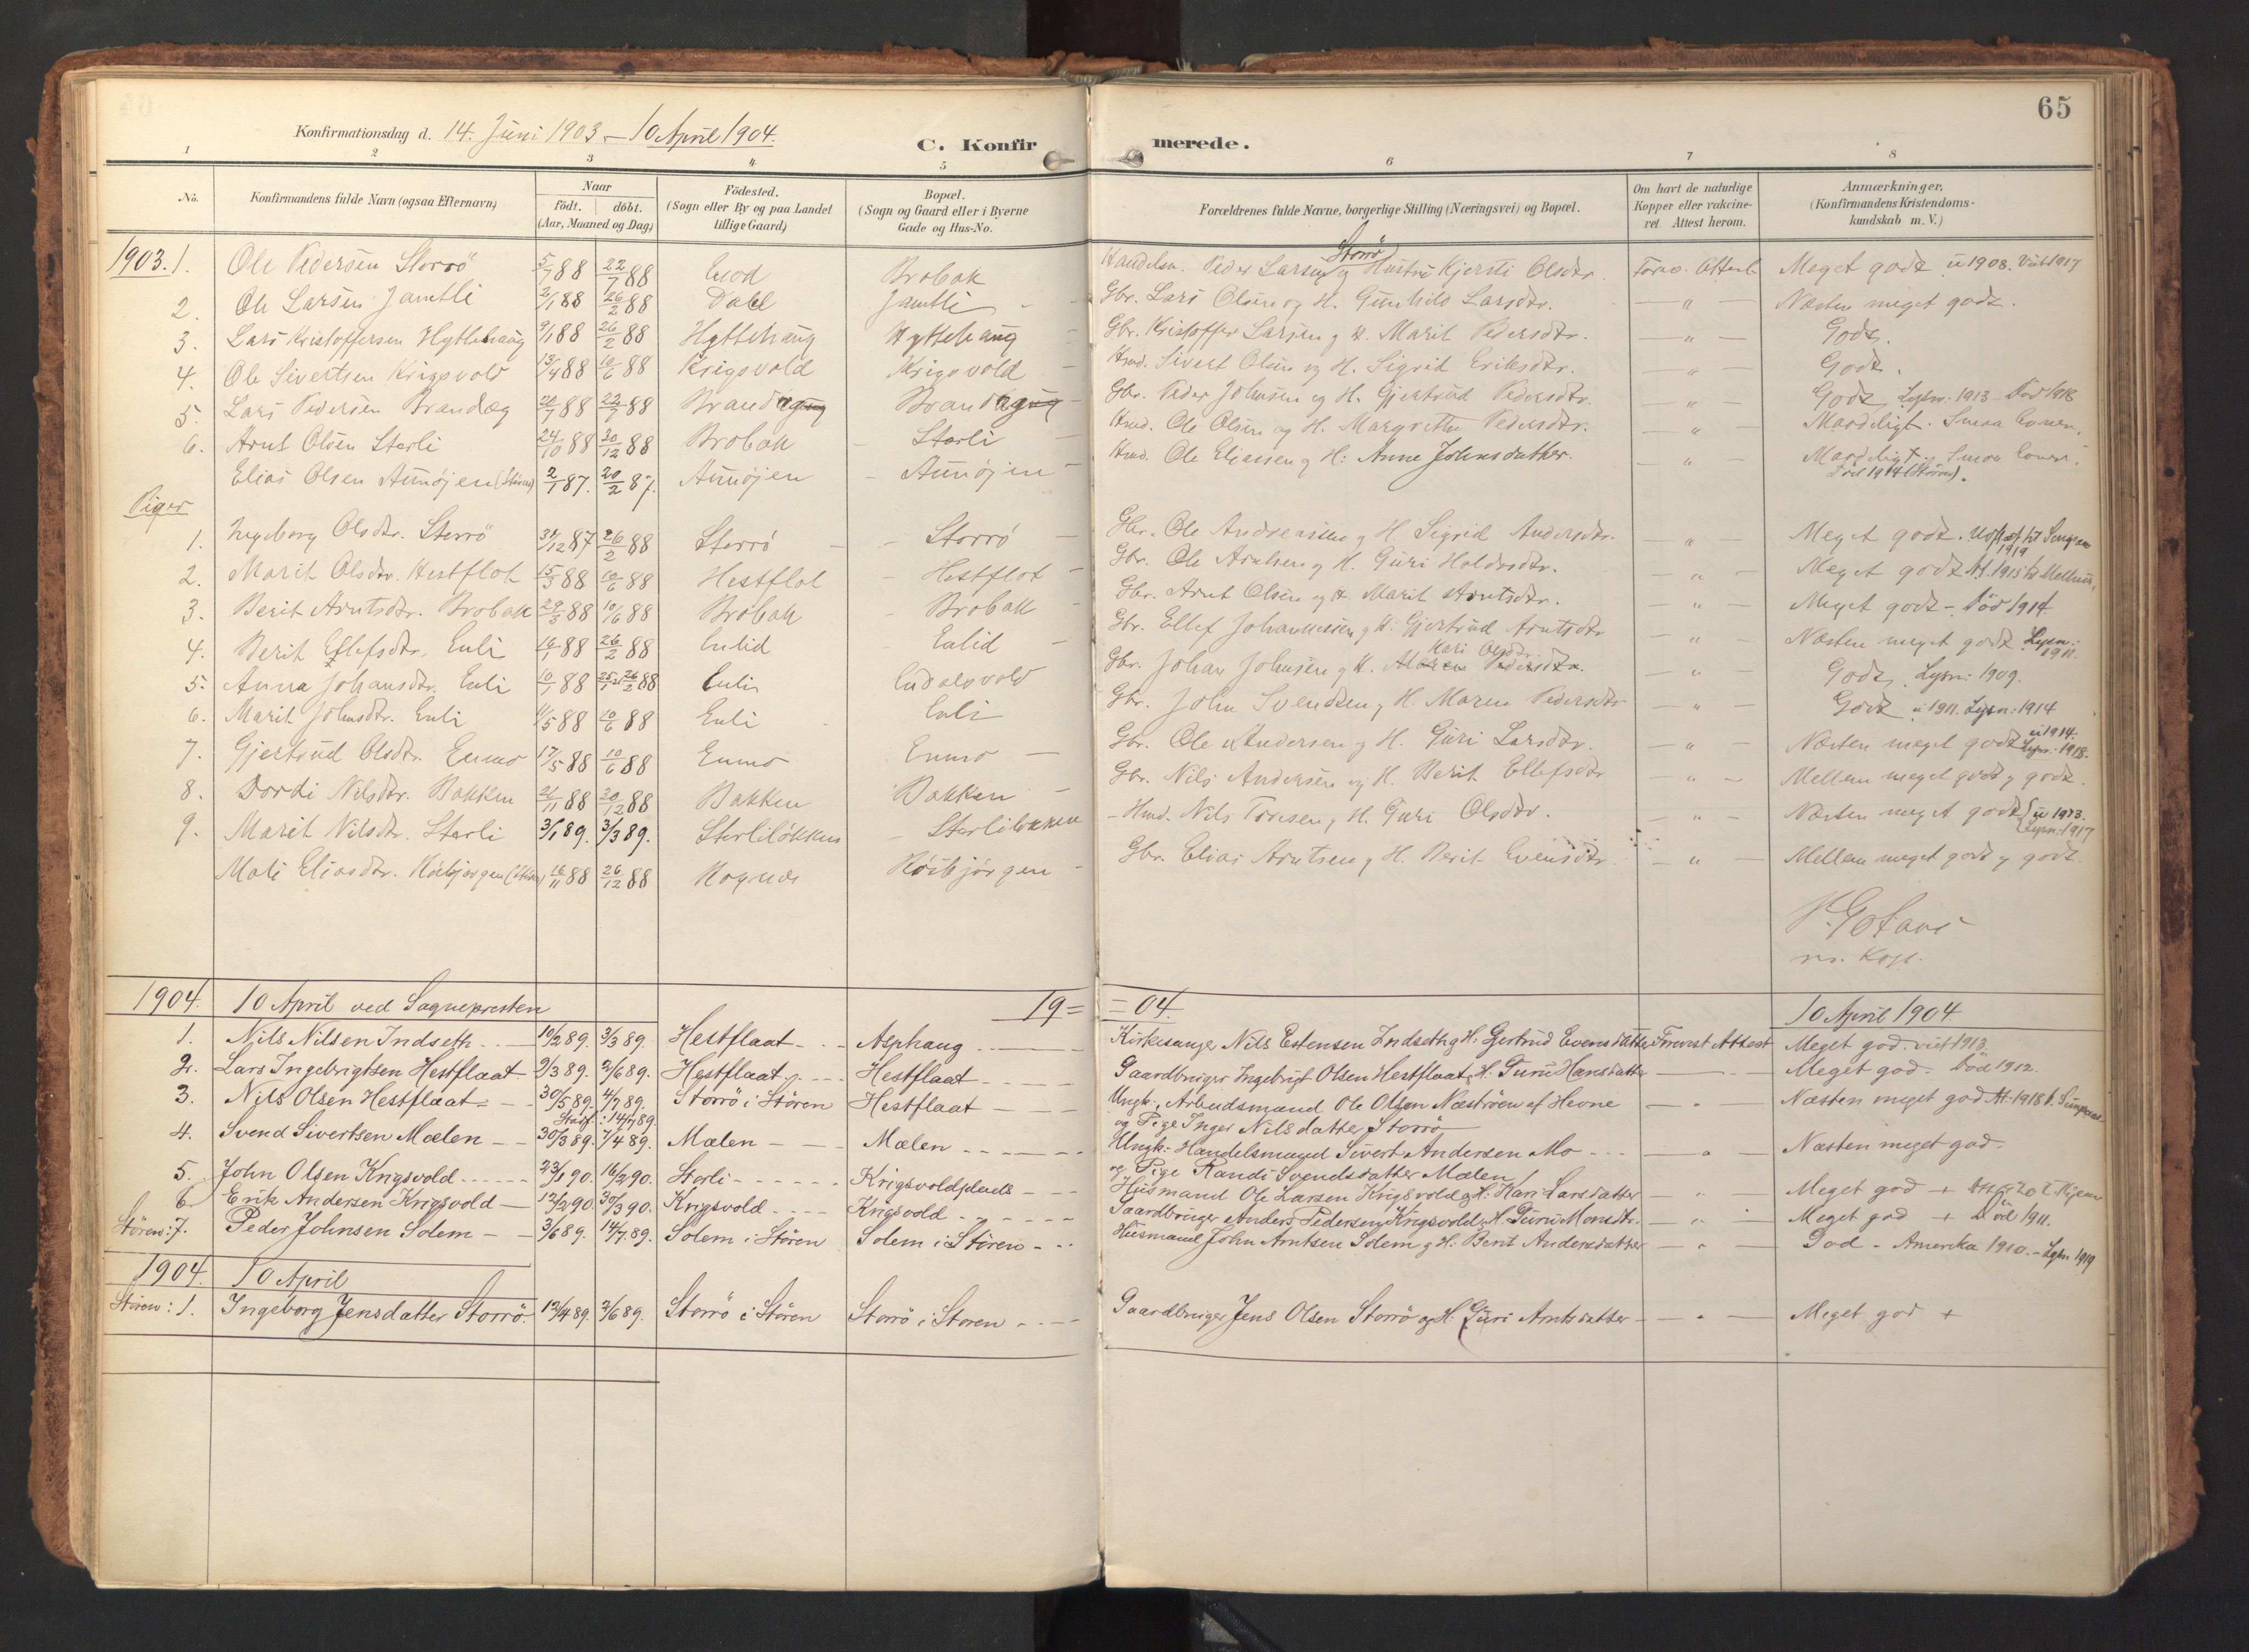 65
Konfirmationsdag d. 14. Juni 1903 - 10 April 1904.
C. Konfirmerede.
1 2 3 4 5 6 7 8
No. Konfirmandens fulde Navn (ogsaa Efternavn) Naar født. døbt. (Aar, Maaned og Dag) Fødested. (Sogn eller By og paa Landet tillige Gaard) Bopæl. (Sogn og Gaard eller i Byerne Gade og Hus-No. Forældrenes fulde Navne, borgerlige Stilling (Næringsvei) og Bopæl. Om havt de naturlige Kopper eller vakcineret Attest herom. Anmærkninger. (Konfirmandens Kristendomskundskab m. V.)
1903. 1. Ole Pedersen Storrö 5/7 88 22/7 88 Brobak Handelsm. Peder Larsen Storrö og Hustru Kjersti Olsdtr. Meget godt u 1908. Viet 1917
2. Ole Larsen Jamtli 2/1 88 26/2 88 Jamtli Gbr. Lars Olsen og H. Gunhild Larsdtr. - " - Næsten meget godt.
3. Lars Kristoffersen Hyttehaug 9/1 88 26/2 88 Hyttehaug Hyttehaug Gbr. Kristoffer Larsen og H. Marit Pedersdtr. - " - Godt.
4. Ole Sivertsen Krigsvold 13/4 88 10/6 88 Krigsvold Krigsvold Hmd. Sivert Olsen og H. Sigrid Eriksdtr. - " - Godt.
5. Lars Pedersen Brandæg 22/7 88 Gbr. Peder Johnsen og H. Gjertrud Pedersdtr. - " - Godt Lysn. 1913 - Død 1918
6. Arnt Olsen Sterli 24/10 88 20/12 88 Brobak Sterli Hmd. Ole Olsen og H. Margrethe Pedersdtr. - " - Maadeligt. Smaa Evner.
Elias Olsen Aunøjen (Støren) 2/1 87. 20/2 87. Aunøjen Aunøjen Hmd. Ole Eliassen og H: Anne Johnsdatter. - " - Maadeligt. Smaa Evner.
Piger
1. Ingeborg Olsdtr. Storrö 31/12 87 26/2 88 Storrö Storrö Gbr. Ole Andreassen og H. Sigrid Andersdtr. - " - Meget godt. 1919
2. Marit Olsdtr. Hestflot 15/3 88 10/6 88 Hestflot Hestflot Gbr. Ole Arntsen og H. Guri Haldosdtr. - " - Meget godt At. 1915 til Melhus,
3. Berit Arntsdtr. Brobak 10/6 88 Brobak Brobak Gbr. Arnt Olsen og H. Marit Arntsdtr. - " - Meget godt - Död 1914.
4. Berit Ellefsdtr. Enli 26/2 88 Enlid Enlid Gbr. Ellef Johannessen og H. Gjertrud Arntsdtr - " - Næsten meget godt Lysn: 1911.
5. Anna Johansdtr. Enli 10/1 88 26/2 88 Enli Gbr. Johan Johnsen og H. Kari Olsdtr. Maren Pedersdtr. - " - Godt. Lysn: 1909.
6. Marit Johnsdtr. Enli 11/5 88 10/6 88 Enli Enli Gbr. John Svendsen og H. Maren Pedersdtr - " - Godt u 1911. Lysn: 1914
7. Gjertrud Olsdtr. Enmo 17/5 88 10/6 88 Enmo Enmo Gbr. Ole Andersen og H. Guri Larsdtr. - " - Næsten meget godt u 1914. Lysn: 1918.
8. Dordi Nilsdtr. Bakken 21/11 88 20/12 88 Bakken Bakken Gbr. Nils Andersen og H. Berit Ellefsdtr - " - Mellem meget godt og godt.
9. Marit Nilsdtr. Sterli 3/1 89. 3/3 89. Sterliløkken Sterliløkken Hmd. Nils Tøresen og H. Guri Olsdtr. - " - Næsten meget godt u 1913. Lysn: 1917
Mali Eliasdtr. Röebjørgen 16/11 88 26/12 88 Rognes Röebjørgen Gbr. Elias Arntsen og H. Berit Evensdtr. - " - Mellem meget godt og godt.
1904. 10 April ved Sognepresten 19= =04. 10 April 1904
1. Nils Nilsen Indseth 10/2 89. 3/3 89. Hestflaat Asphaug Kirkesanger Nils Estensen Indseth og H: Gertrud Evensdatter Forevist Attest Meget god. viet 1913.
2. Lars Ingebrigtsen Hestflaat 2/3 89. 2/6 89. Hestflaat Hestflaat Gaardbruger Ingebrigt Olsen Hestflaat og H. Guru Hansdatter Meget god. Död 1912.
3. Nils Olsen Hestflaat 30/5 89. 4/7 89. Storrö i Stören Hestflaat Ungk., Arbeidsmand Ole Olsen Næströen af Hevne og Pige Inger Nilsdatter Storrö Næsten meget god At. 1918
4. Svend Sivertsen Mælen 30/3 89. 7/4 89. Mælen Mælen Ungk: Handelsmand Sivert Andersen Mo og Pige Randi Svendsdatter Mælen Næsten meget god.
5. John Olsen Krigsvold 23/1 90. 16/2 90. Sterli Krigsvoldplads Husmand Ole Larsen Krigsvold og H: Kari Larsdatter Meget god +
6. Erik Andersen Krigsvold 12/2 90. 30/3 90. Krigsvold Krigsvold Gaardbruger Anders Pedersen Krigsvold og H. Guru Monsdtr. Meget god + Död 1911.
Stören: 7. Peder Johnsen Solem 3/6 89. 14/7 89. Solem i Stören Solem i Stören Husmand John Arntsen Solem og H: Berit Andersdatter God - Amerika 1910. - Lysn 1919
1904. 10 April
Stören: 1. Ingeborg Jensdatter Storrö. 12/4 89. 2/6 89. Storrö i Stören Storrö i Stören Gaardbruger Jens Olsen Storrö og H: Guri Arntsdatter Meget god +